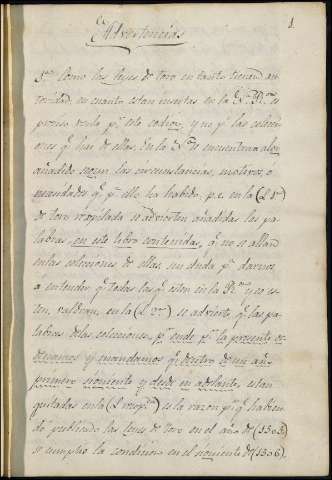 1
Advertencias
1.ª Como las leyes de toro en tanto tienen au-
toridad, en cuanto estan insertas en la N.ª R.ª es
preciso verla p.r este codigo, y no p.r las coleccio-
nes q.e hai de ellas. En la R.ª se encuentra algo
añadido segun las circunstancias, motivos, o
mandados q.e p.ª ello ha habido. p.e. en la (L 1.ª)
de toro recopilada se advierten añadidas las pa-
labras, en este libro contenidas, q.e no se allan
en las colecciones de ellas, sin duda p.ª darnos
a entender q.e todas las q.e esten en la R.ª
valdran, en la (L 2.ª) se advierte q.e las pa-
labras de las colecciones, p.r ende p.r la presente or-
denamos y mandamos q.e dentro de un año
primero siguiente y dende en adelante, estan
quitadas en la (L recop.ª) es la razon p.r q.e habien-
do publicado las leyes de toro en el año de (1505)
se cumplio la condicion en el siguiente de (1506).